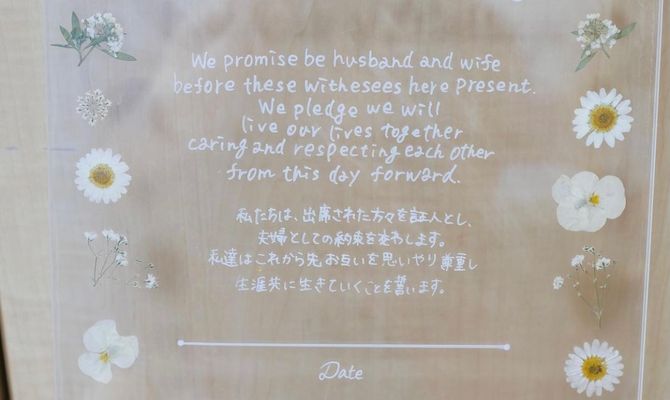 We promise be husband and wife
before these withesees here present.
We pledge we will
live our lives together
caring and respecting each other
from this day forward.
私たちは、出席された方々を証人とし、
夫婦としての約束を交わします。
私達はこれから先、お互いを思いやり尊重し
生涯共に生きていくことを誓います。
Date